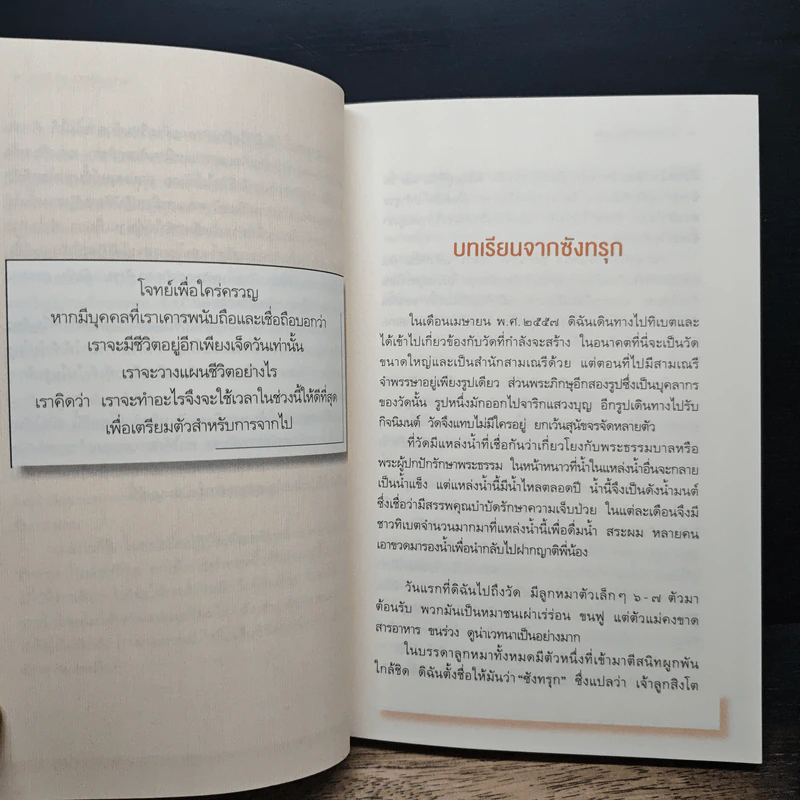 โจทย์เพื่อใคร่ครวญ
หากมีบุคคลที่เราเคารพนับถือและเชื่อถือบอกว่า
เราจะมีชีวิตอยู่อีกเพียงเจ็ดวันเท่านั้น
เราจะวางแผนชีวิตอย่างไร
เราคิดว่า เราจะทำอะไรจึงจะใช้เวลาในช่วงนี้ให้ดีที่สุด
เพื่อเตรียมตัวสำหรับการจากไป
บทเรียนจากซังทรุก
ในเดือนเมษายน พ.ศ. ๒๕๕๗ ดิฉันเดินทางไปทิเบตและ
ได้เข้าไปเกี่ยวข้องกับวัดที่กำลังจะสร้าง ในอนาคตที่นี่จะเป็นวัด
ขนาดใหญ่และเป็นสำนักสามเณรีด้วย แต่ตอนที่ไปมีสามเณรี
จำพรรษาอยู่เพียงรูปเดียว ส่วนพระภิกษุอีกสองรูปซึ่งเป็นบุคลากร
ของวัดนั้น รูปหนึ่งมักออกไปจาริกแสวงบุญ อีกรูปเดินทางไปรับ
กิจนิมนต์ วัดจึงแทบไม่มีใครอยู่ ยกเว้นสุนัขจรจัดหลายตัว
ที่วัดมีแหล่งน้ำที่เชื่อกันว่าเกี่ยวโยงกับพระธรรมบาลหรือ
พระผู้ปกปักรักษาพระธรรม ในหน้าหนาวที่น้ำในแหล่งน้ำอื่นจะกลาย
เป็นน้ำแข็ง แต่แหล่งน้ำนี้มีน้ำไหลตลอดปี น้ำนี้จึงเป็นดังน้ำมนต์
ซึ่งเชื่อว่ามีสรรพคุณบำบัดรักษาความเจ็บป่วย ในแต่ละเดือนจึงมี
ชาวทิเบตจำนวนมากมาที่แหล่งน้ำนี้เพื่อดื่มน้ำ สระผม หลายคน
เอาขวดมารองน้ำเพื่อนำกลับไปฝากญาติพี่น้อง
วันแรกที่ดิฉันไปถึงวัด มีลูกหมาตัวเล็กๆ ๖-๗ ตัวมา
ต้อนรับ พวกมันเป็นหมาชนเผ่าเร่ร่อน ขนฟู แต่ตัวแม่คงขาด
สารอาหาร ขนร่วง ดูน่าเวทนาเป็นอย่างมาก
ในบรรดาลูกหมาทั้งหมดมีตัวหนึ่งที่เข้ามาตีสนิทผูกพัน
ใกล้ชิด ดิฉันตั้งชื่อให้มันว่า "ซังทรุก" ซึ่งแปลว่า เจ้าลูกสิงโต